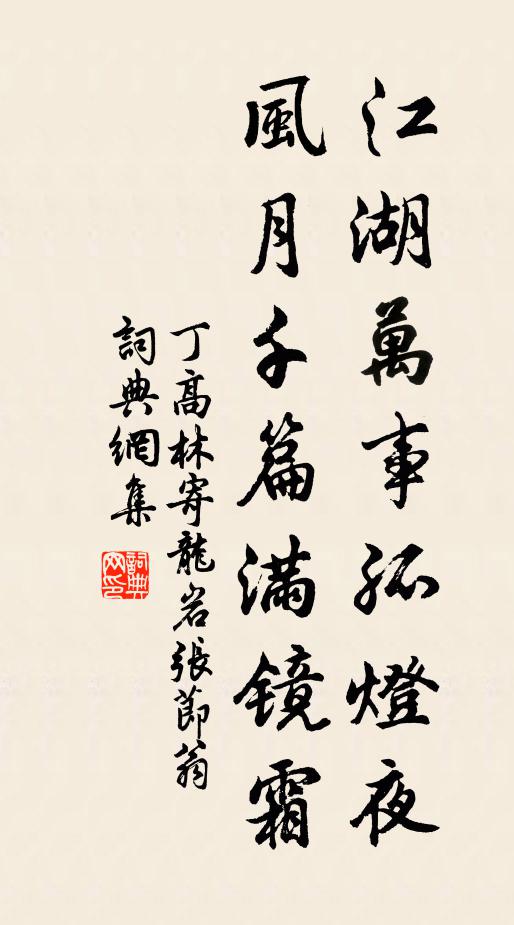 江湖萬事孤燈夜
風月千篇满镜霜
丁高林寄龍岩張節翁
詞典網集
詞典网印